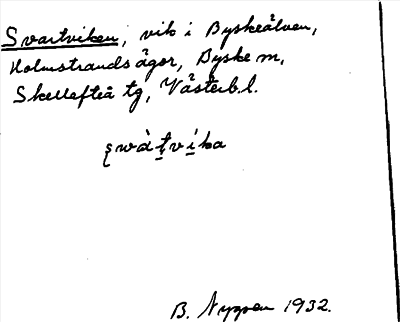 Svartviken, vik i Byskeälven,
Holmstrands ägor, Byske m,
Skellefteå tg, Västerb. l.
ʂwàt̠vi̠ka
B. Nygren 1932.